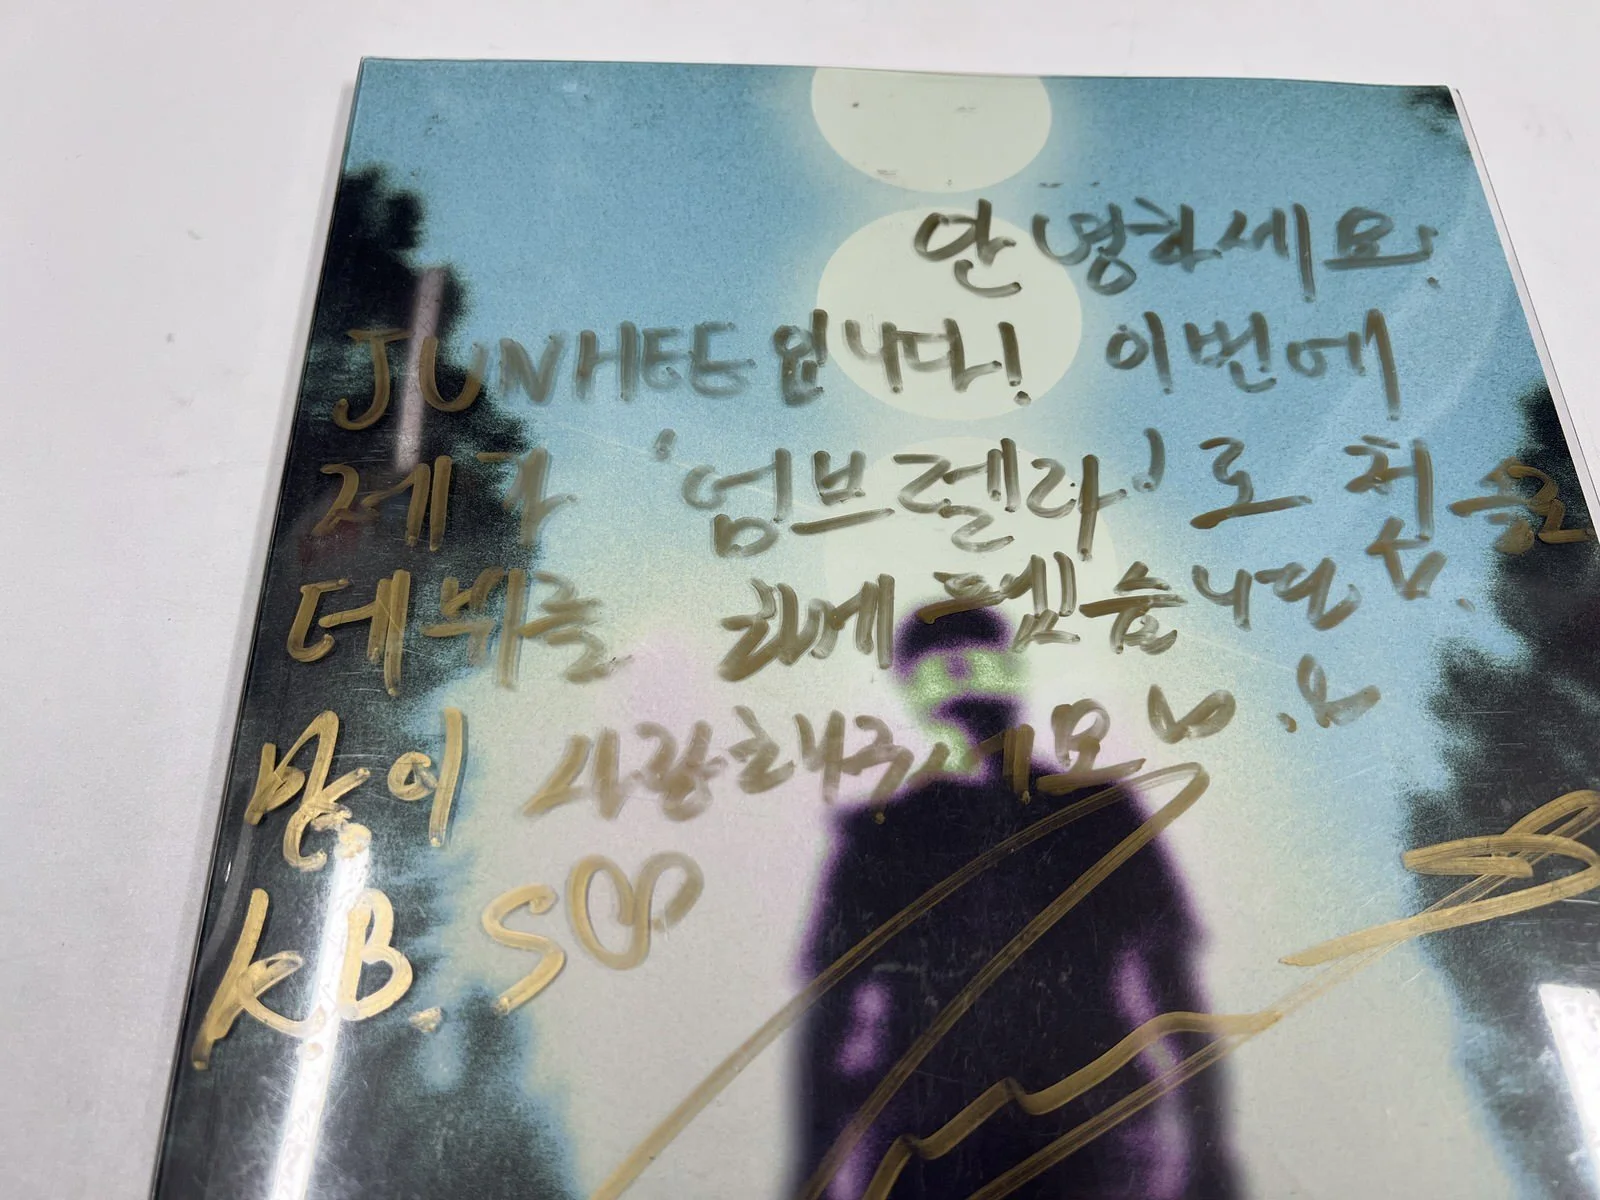 안녕하세요.
JUNHEE입니다! 이번에
제가 '엄브렐라'로 첫 솔로
데뷔를 하게 됐습니다.
많이 사랑해주세요
KB.